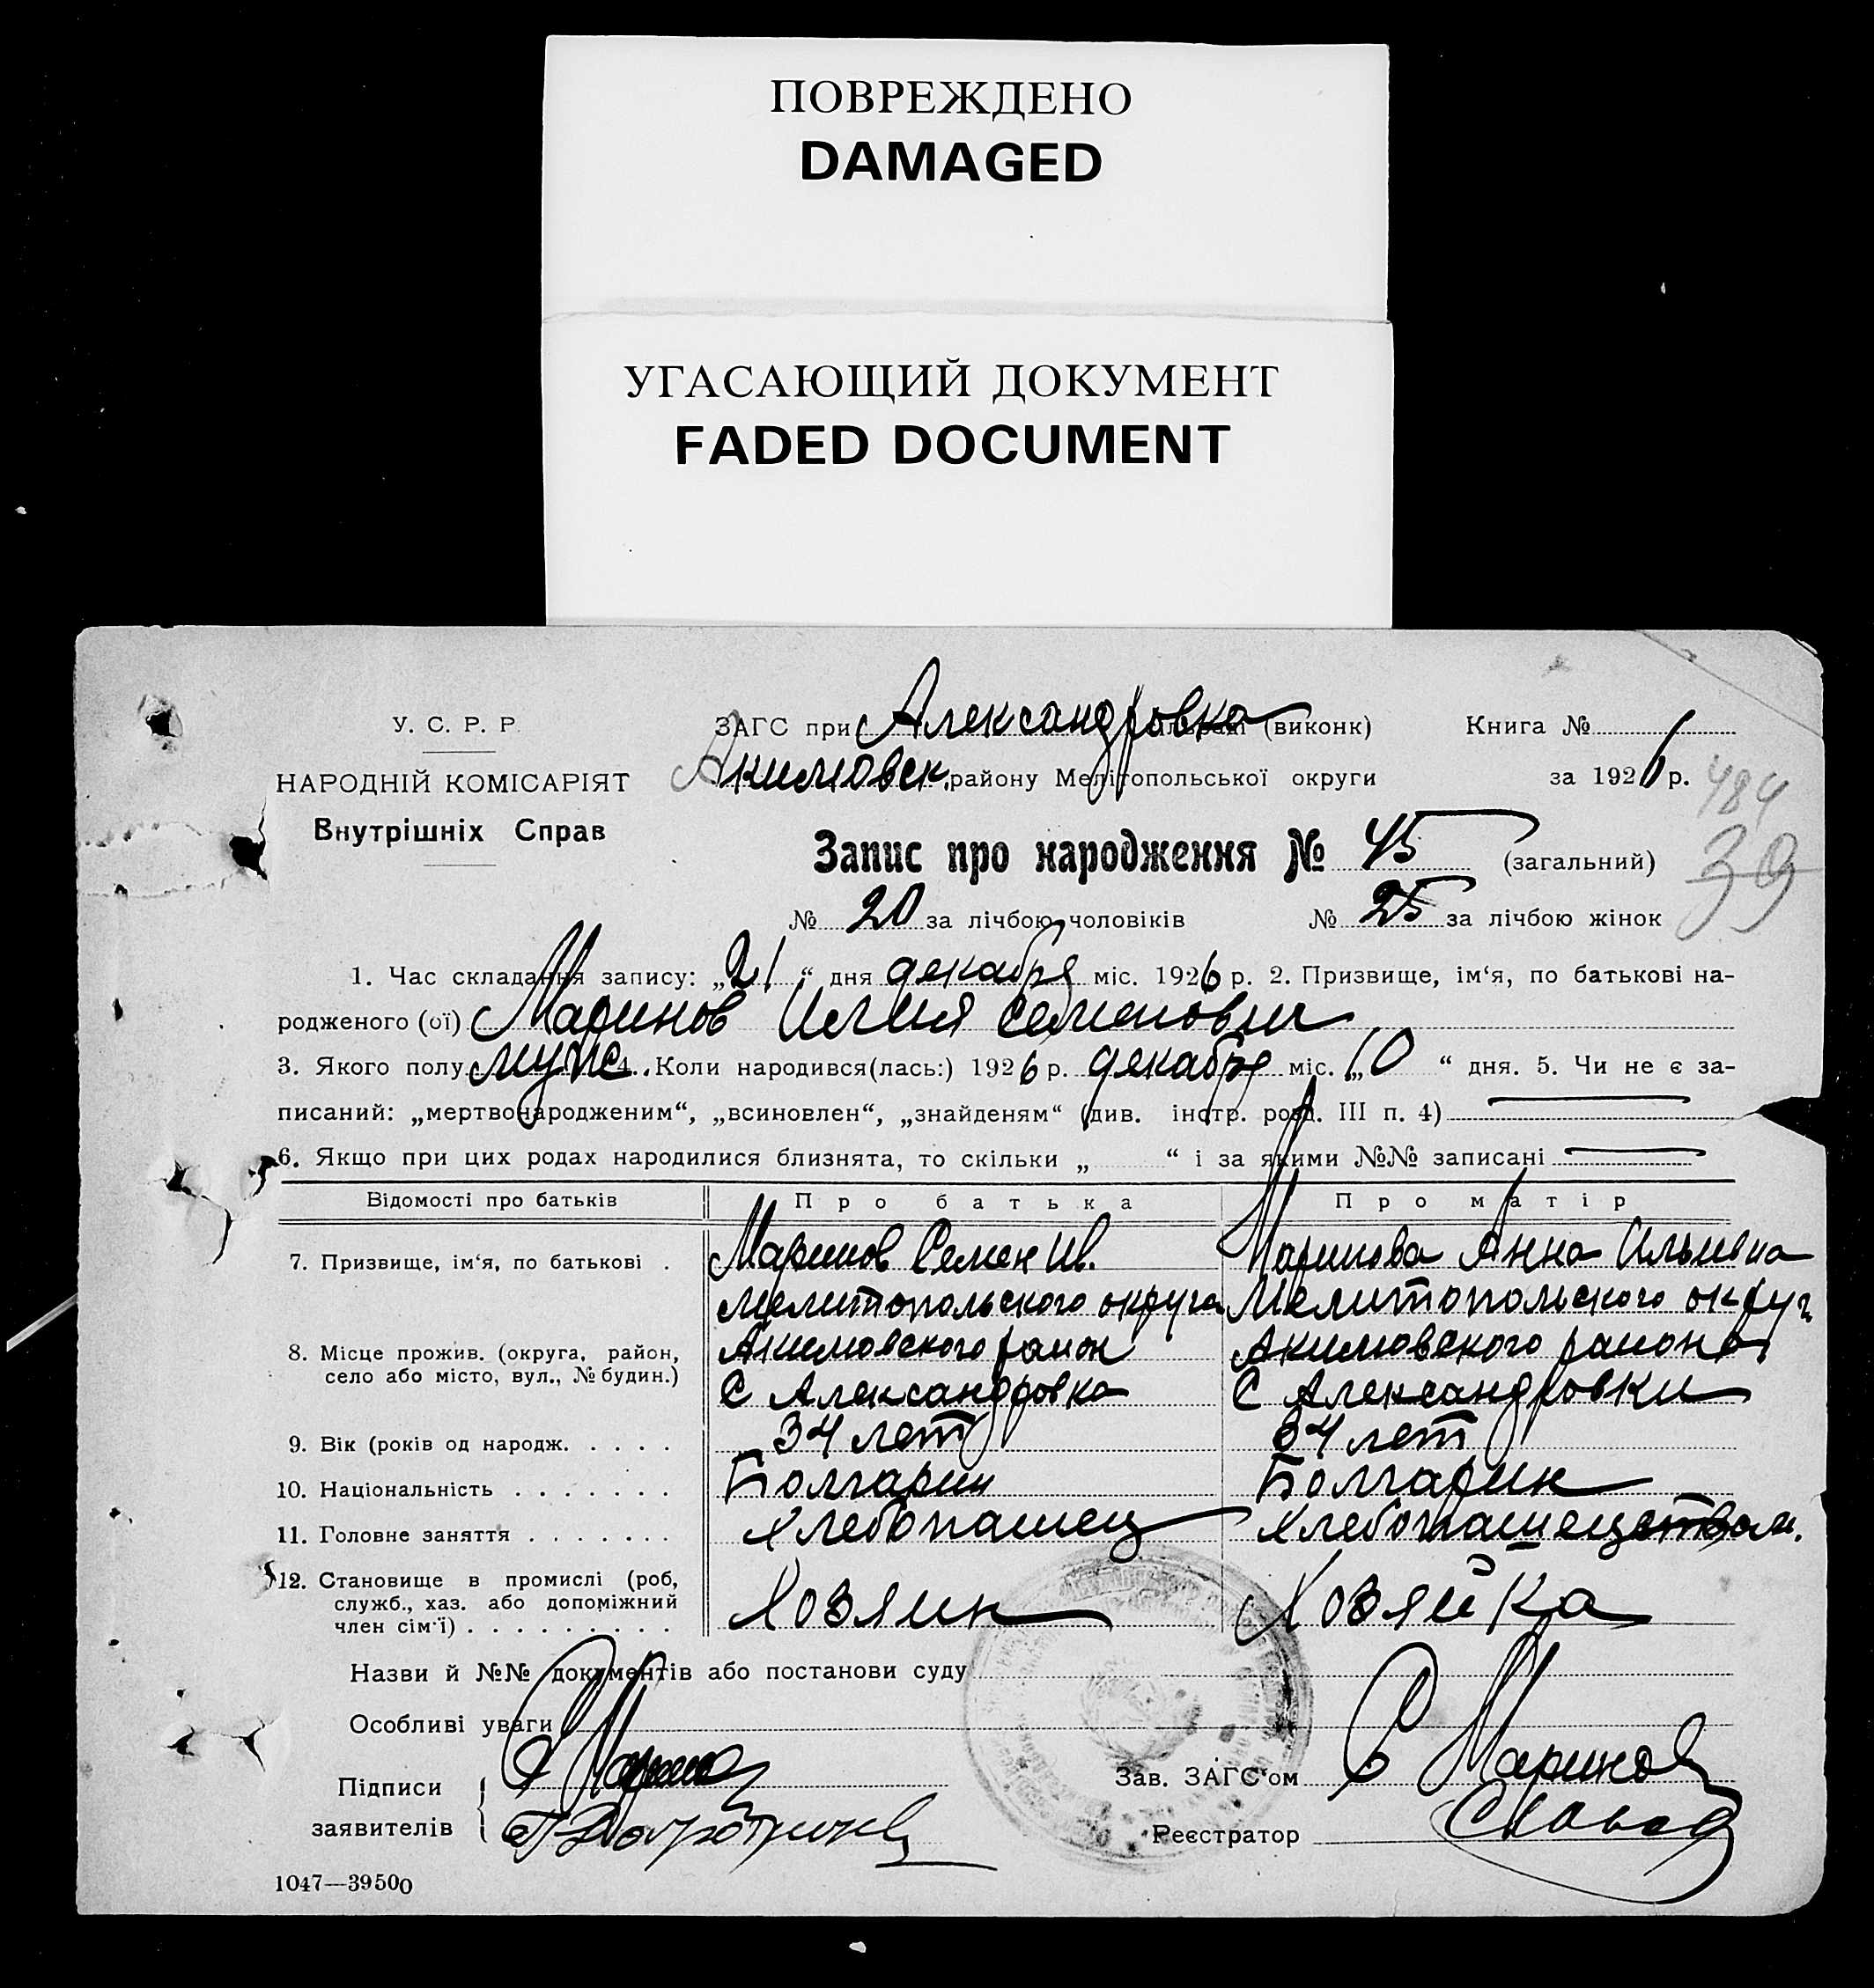 ПОВРЕЖДЕНО
DAMAGED
УГАСАЮЩИЙ ДОКУМЕНТ
FADED DOCUMENT
У. С. Р. Р.
НАРОДНІЙ КОМІСАРІЯТ
Внутрішніх Справ
ЗАГС при Александровка (виконк)
Акимовск. району Мелітопольської округи
Книга №
за 1926 р.
484
39
Запис про народження № 45 (загальний)
№ 20 за лічбою чоловіків № 25 за лічбою жінок
1. Час складання запису: „21“ дня декабря міс. 1926 р. 2. Призвище, ім‘я, по батькові на-
родженого (ої) Маринов Илия Семенович
3. Якого полу муж. 4. Коли народився(лась:) 1926 р. декабря міс. „10“ дня. 5. Чи не є за-
писаний: „мертвонародженим“, „всиновлен“, „знайденям“ (див. інстр. розд. III п. 4)
6. Якщо при цих родах народилися близнята, то скільки „ “ і за якими №№ записані
Відомості про батьків Про батька Про матір
7. Призвище, ім‘я, по батькові . Маринов Семен Ив. Маринова Анна Ильивна
Мелитопольского округа Мелитопольского округ
8. Місце прожив. (округа, район, Акимовского район Акимовского района
село або місто, вул., № будин.) С Александровка С Александровки
9. Вік (років од народж. . . . . 34 лет 34 лет
10. Національність . . . . . . . Болгарин Болгарин
11. Головне заняття . . . . . . . Хлебопашец Хлебопашецством.
12. Становище в промислі (роб,
служб., хаз. або допоміжний Хозяин Хозяйка
член сім‘ї) . . . . . . . . .
Назви й №№ документів або постанови суду
Особливі уваги
Підписи
заявителів
Зав. ЗАГС‘ом С Маринов
Реєстратор
1047—39500